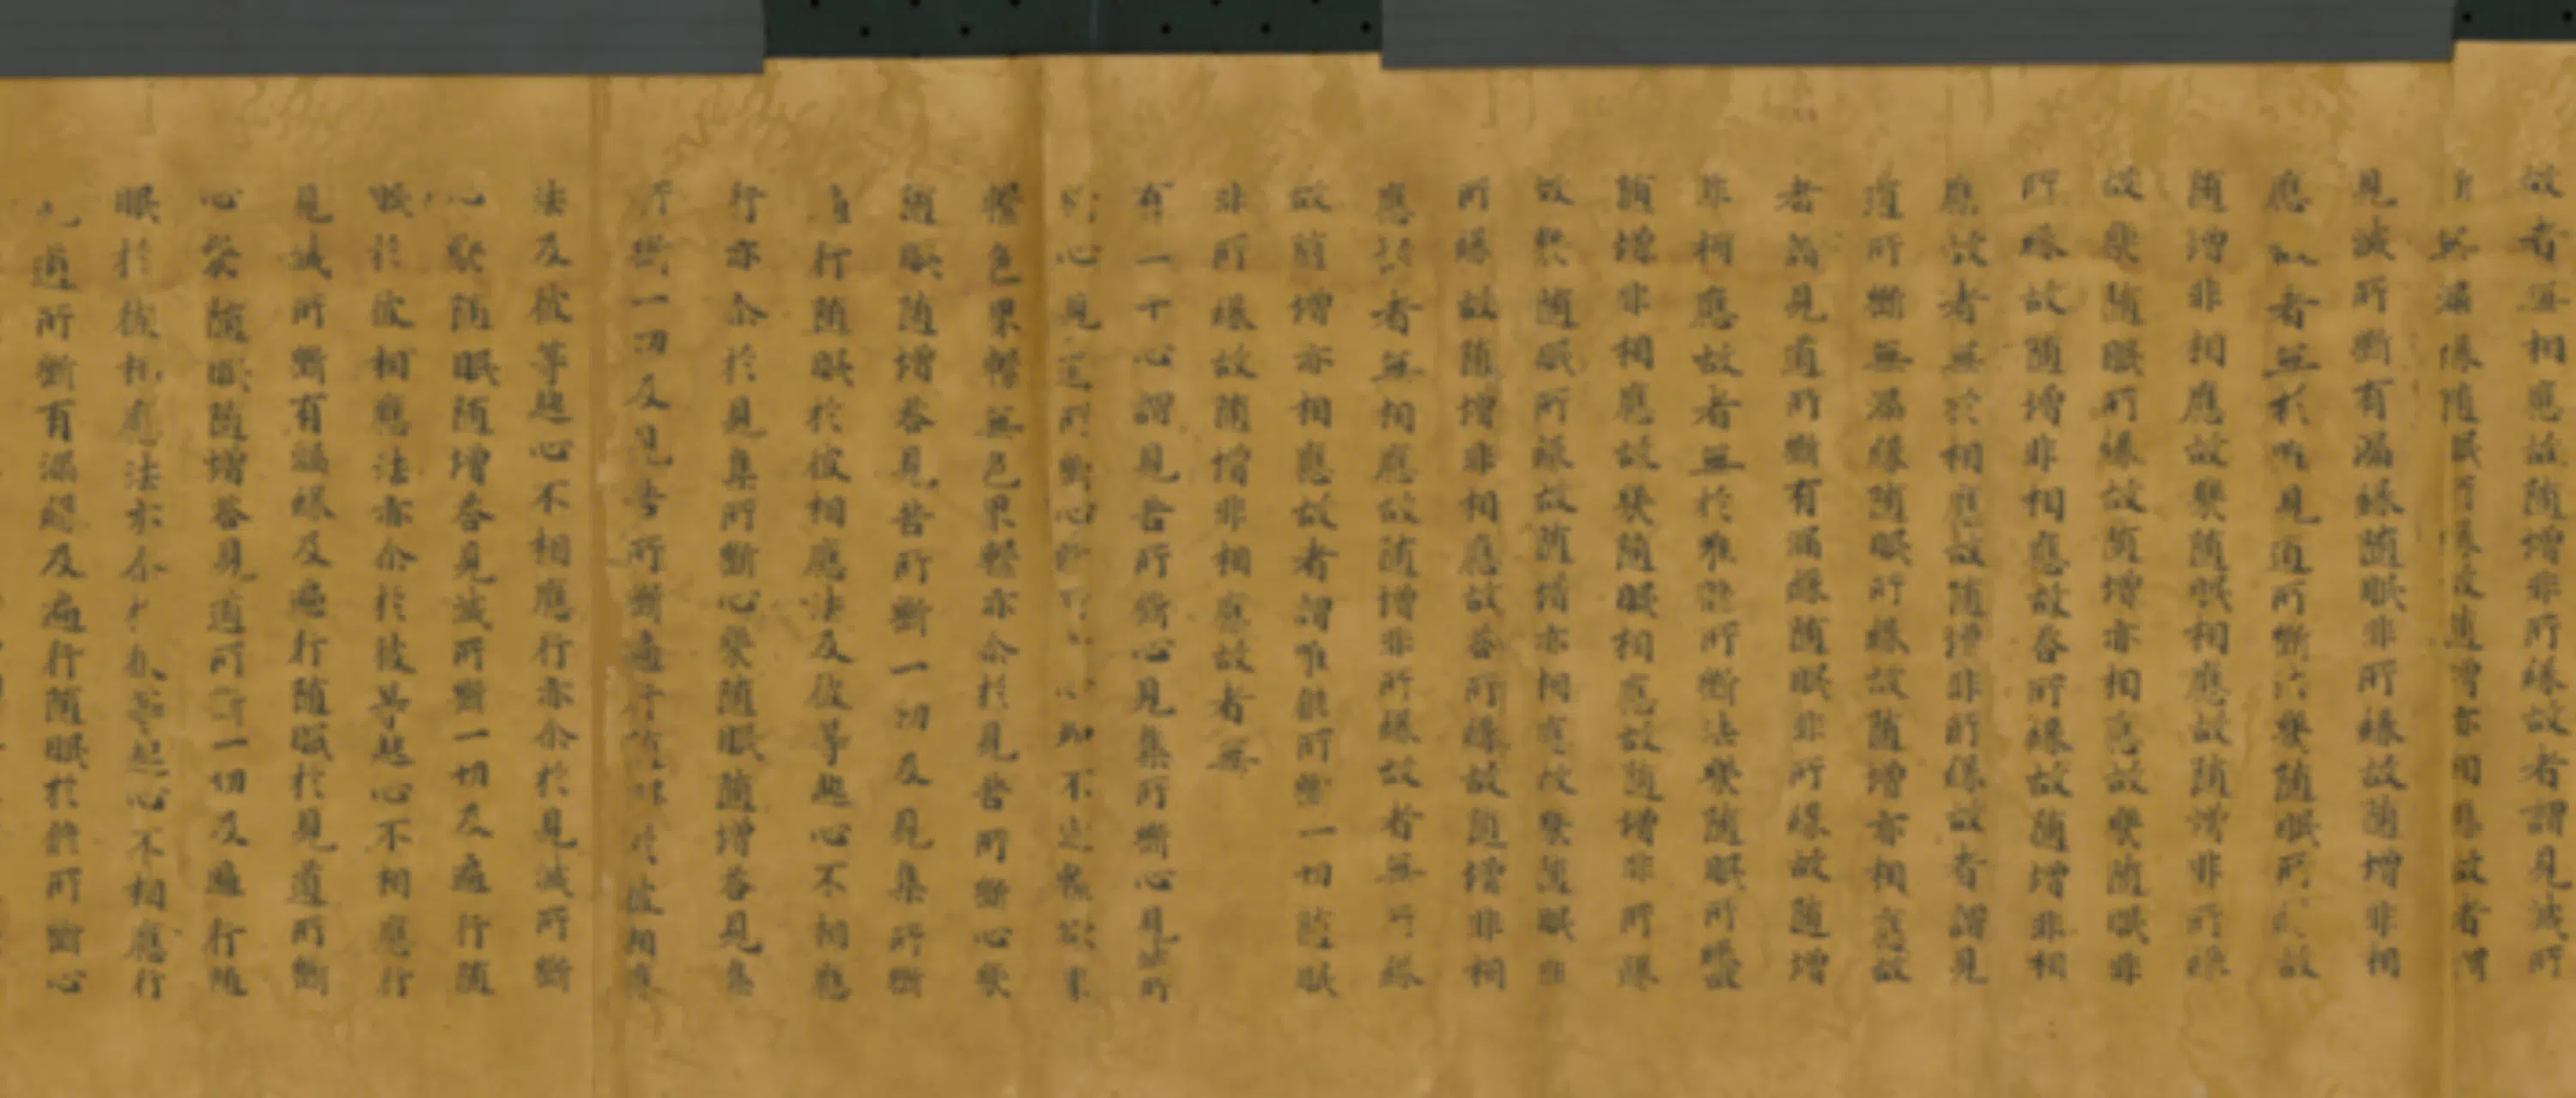 故者無相應故随增非所緣故者謂見滅所
無漏緣随眠所緣故随增亦相應故者謂
見滅所斷有漏緣随眠非所緣故随增非相
應故者無於唯見道所斷法幾随眠所緣故
随增非相應故幾随眠相應故随增非所緣
故幾随眠所緣故随增亦相應故幾随眠非
所緣故随增非相應故答所緣故随增非相
應故者無於相應故随增非所緣故者謂見
道所斷無漏緣随眠所緣故随增亦相應故
者謂見道所斷有漏緣随眠非所緣故随增
非相應故者無於唯修所斷法幾随眠所緣故
随增非相應故幾随眠相應故随增非所緣
故幾随眠所緣故随增亦相應故幾随眠非
所緣故随增非相應故答所緣故随增非相
應故者無相應故随增非所緣故者無所緣
故随增亦相應故者謂唯修所斷一切随眠
非所緣故随增非相應故者無
有一十心謂見苦所斷心見集所斷心見滅所
斷心見道所斷心斷心如不定繫欲界
繫色界繫無色界繫亦尒於見苦所斷心幾
随眠随增答見苦所斷一切及見集所斷
遍行随眠於彼相應法及彼等起心不相應
行亦尒於見集所斷心幾随眠随增答見集
所斷一切及見苦所斷遍行随眠於彼相應
法及彼等起心不相應行亦尒於見滅所斷
心幾随眠随增答見滅所斷一切及遍行随
眠於彼相應法亦尒於彼等起心不相應行
見滅所斷有漏緣及遍行随眠於見道所斷
心幾随眠随增答見道所斷一切及遍行随
眠於彼相應法亦尒於彼等起心不相應行
見道所斷有漏緣及遍行随眠於修所斷心